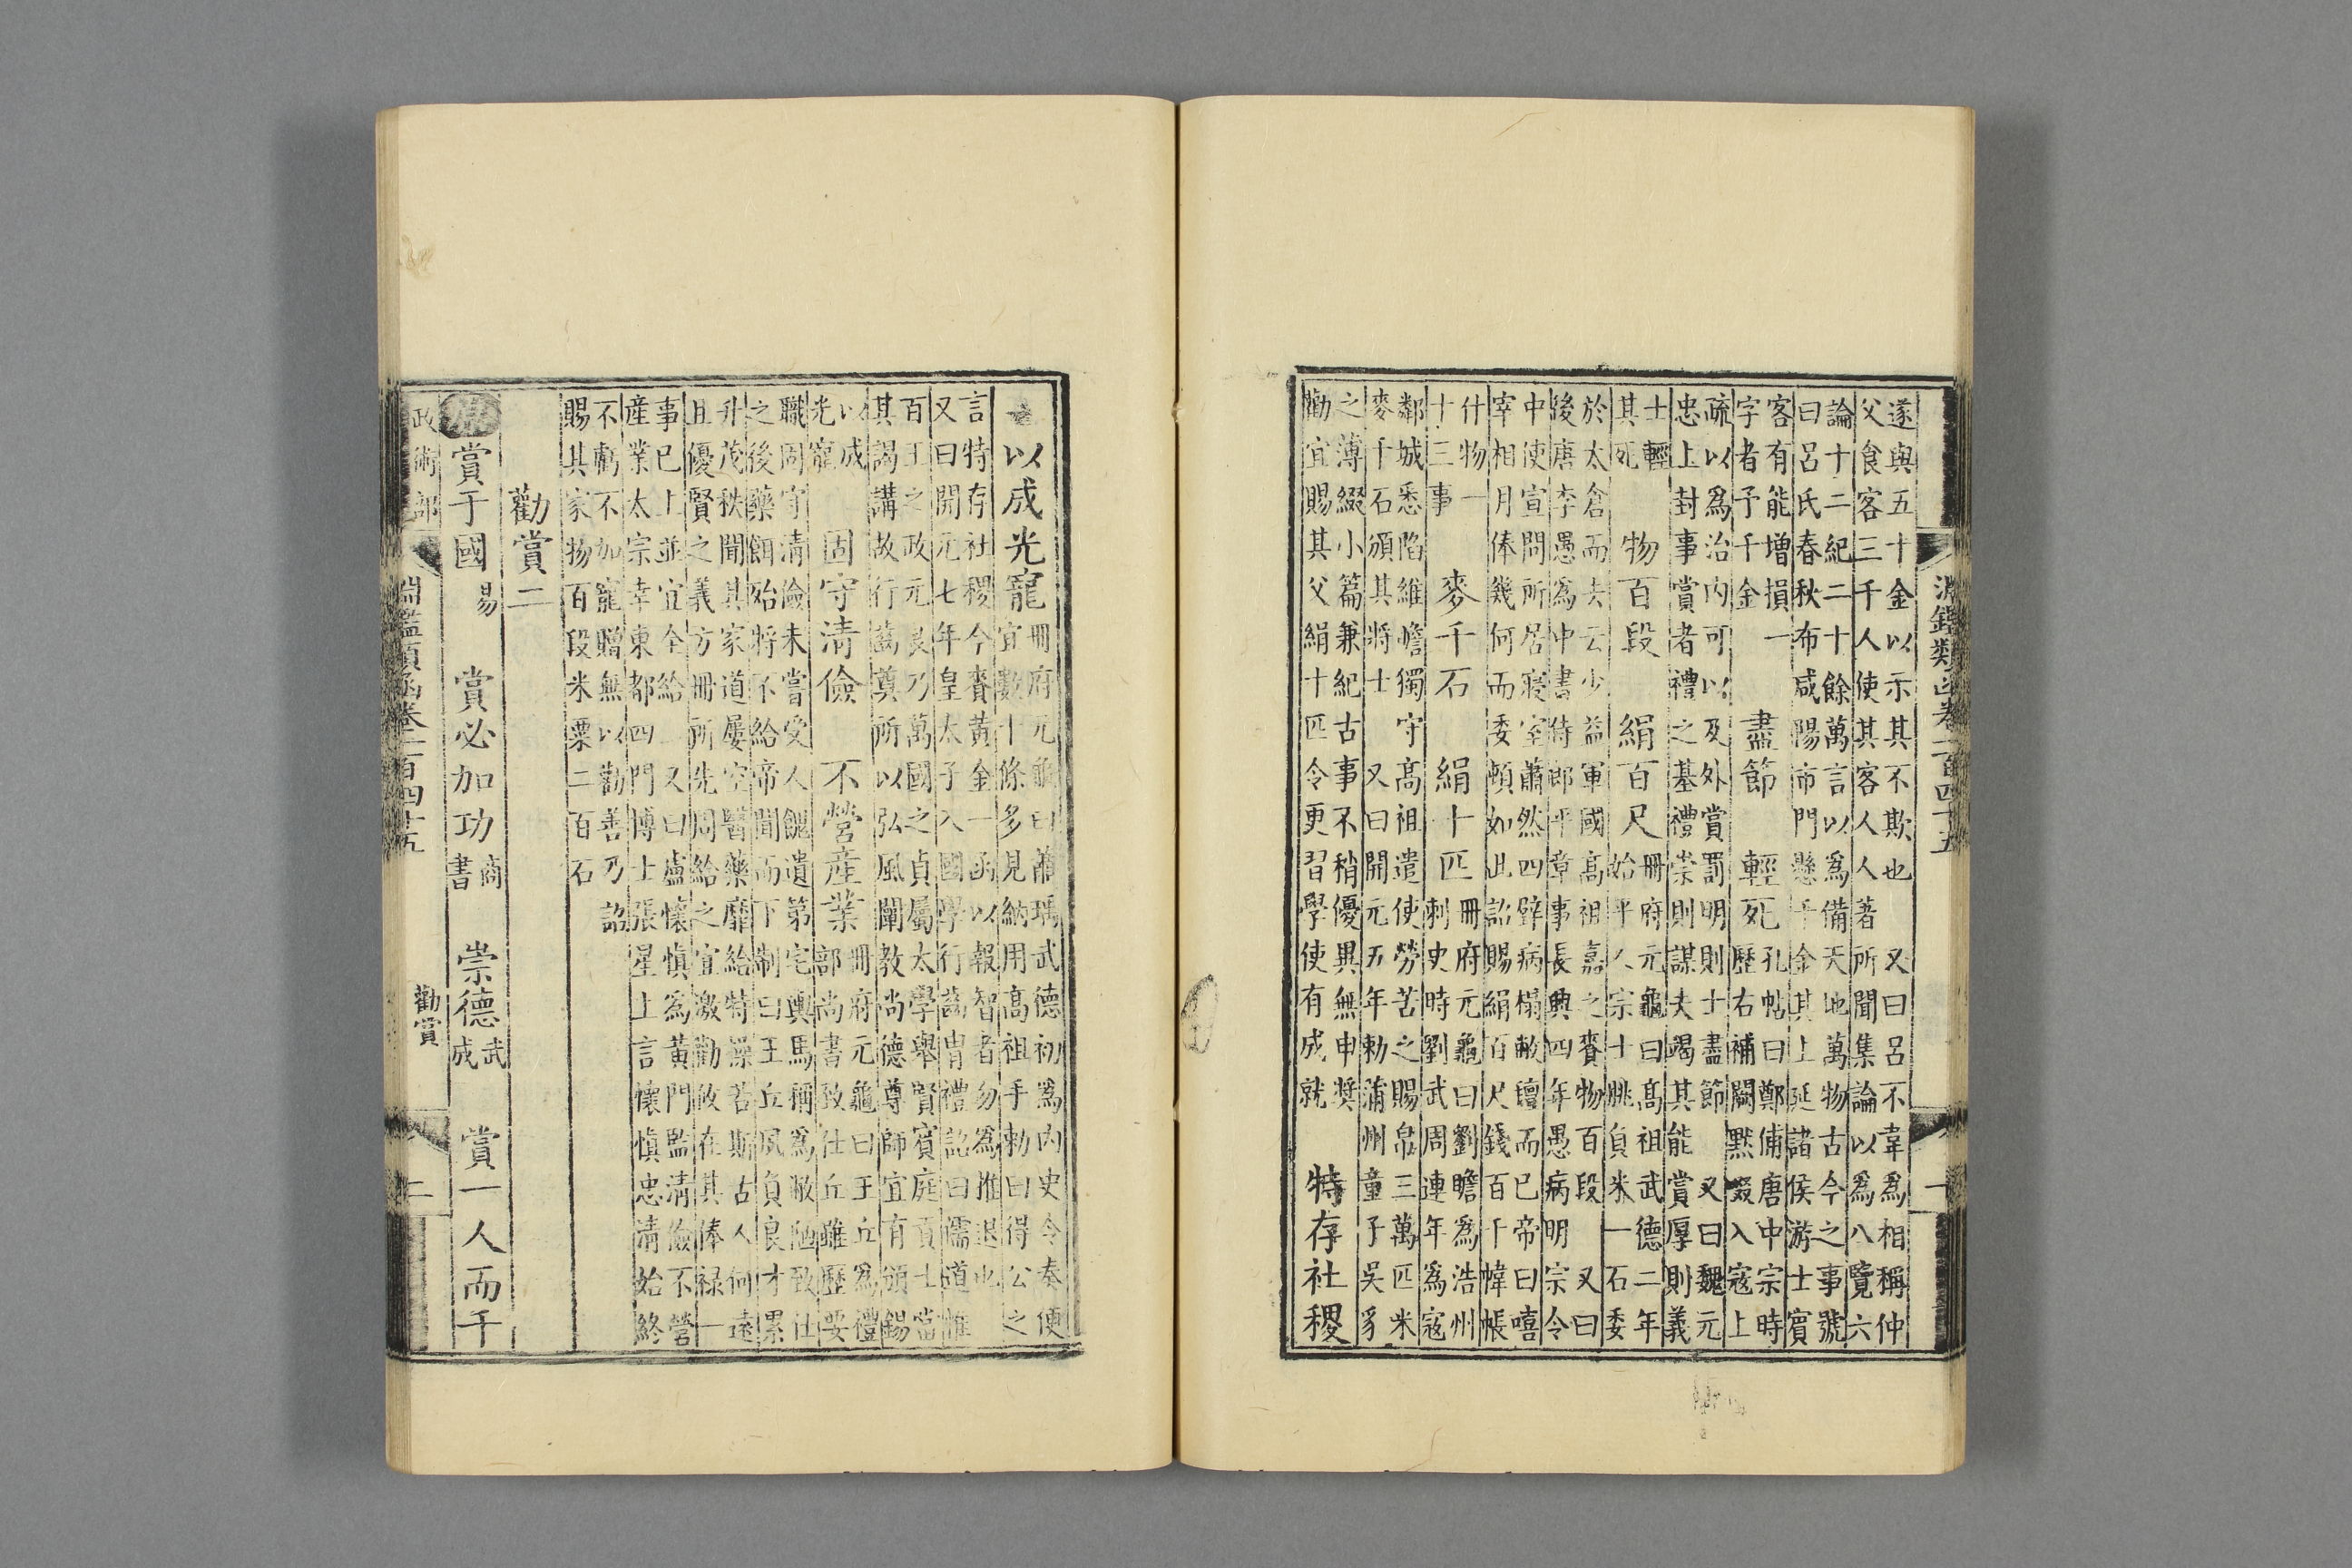 淵鑑類函卷一百四十五
一
遂與五十金以示其不欺也　又曰呂不韋為相稱仲
父食客三千人使其客人人著所聞集論以為八覽六
論十二紀二十餘萬言以為備天地萬物古今之事號
曰呂氏春秋布咸陽市門懸千金其上延諸侯游士賓
客有能增損一
字者予千金
盡節　輕死
孔帖曰鄭唐中宗時
歷右補闕黙啜入寇上
疏以為治內可以及外賞罰明則士盡節　又曰魏元
忠上封事賞者禮之基禮崇則謀夫竭其能賞厚則義
士輕
其死
物百段　絹百尺
冊府元龜曰高祖武德二年
始平人宗士負米一石委
於太倉而去云少益軍國高祖嘉之賚物百段　又曰
後唐李愚為中書侍郎平章事長興四年愚病明宗令
中使宣問所居寢室蕭然四壁病榻敝氈而已帝曰嘻
宰相月俸幾何而委頓如此詔賜絹百尺錢百千幃帳
什物一
十三事
麥千石　絹十匹
冊府元龜曰劉瞻為浩州
刺史時劉武周連年為寇
鄰城悉陷維幨獨守高祖遣使勞苦之賜帛三萬匹米
麥千石頒其將士　又曰開元五年勅蒲州童子吳豸
之薄綴小篇兼紀古事不稍優異無申獎
勸宜賜其父絹十匹令更習學使有成就
特存社稷
以成光寵
冊府元龜曰蕭瑀武德初為內史令奏便
宜數十條多見納用高祖手勅曰得公之
言特存社稷今賚黃金一函以報智者勿為推退也
又曰開元七年皇太子入國學行齒冑禮詔曰儒道惟
百王之政元良乃萬國之貞屬太學舉賢賓庭貢士當
其謁講故行齒奠所以弘風闡教尚德尊師宜有頒錫
以成
光寵
固守清儉　不營產業
冊府元龜曰王丘為禮
部尚書致仕丘雖歷要
職固守清儉未嘗受人饋遺第宅輿馬稱為敝陋致仕
之後藥餌殆將不給帝聞而下制曰王丘夙負良才累
升茂秩聞其家道屢空醫藥靡給特操若斯古人何遠
且優賢之義方冊所先周給之宜激勸攸在其俸祿一
事已上並宜全給　又曰盧懷慎為黃門監清儉不營
產業太宗幸東都四門博士張星上言懷慎忠清始終
不虧不加寵贈無以勸善乃詔
賜其家物百段米粟二百石
勸賞二
原賞于國易　賞必加功商書　崇德武成　賞一人而千
政術部
淵鑑類函卷一百四十五
勸賞
二